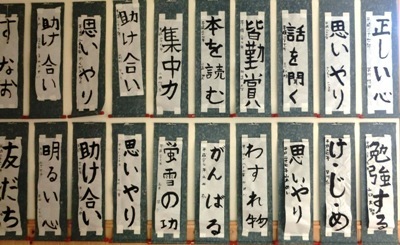 正しい心
思いやり
話を聞く
皆勤賞
本を読む
集中力
助け合い
思いやり
助け合い
すなお
勉強する
けじめ
思いやり
わすれ物
がんばる
蛍雪の功
思いやり
助け合い
明るい心
友だち